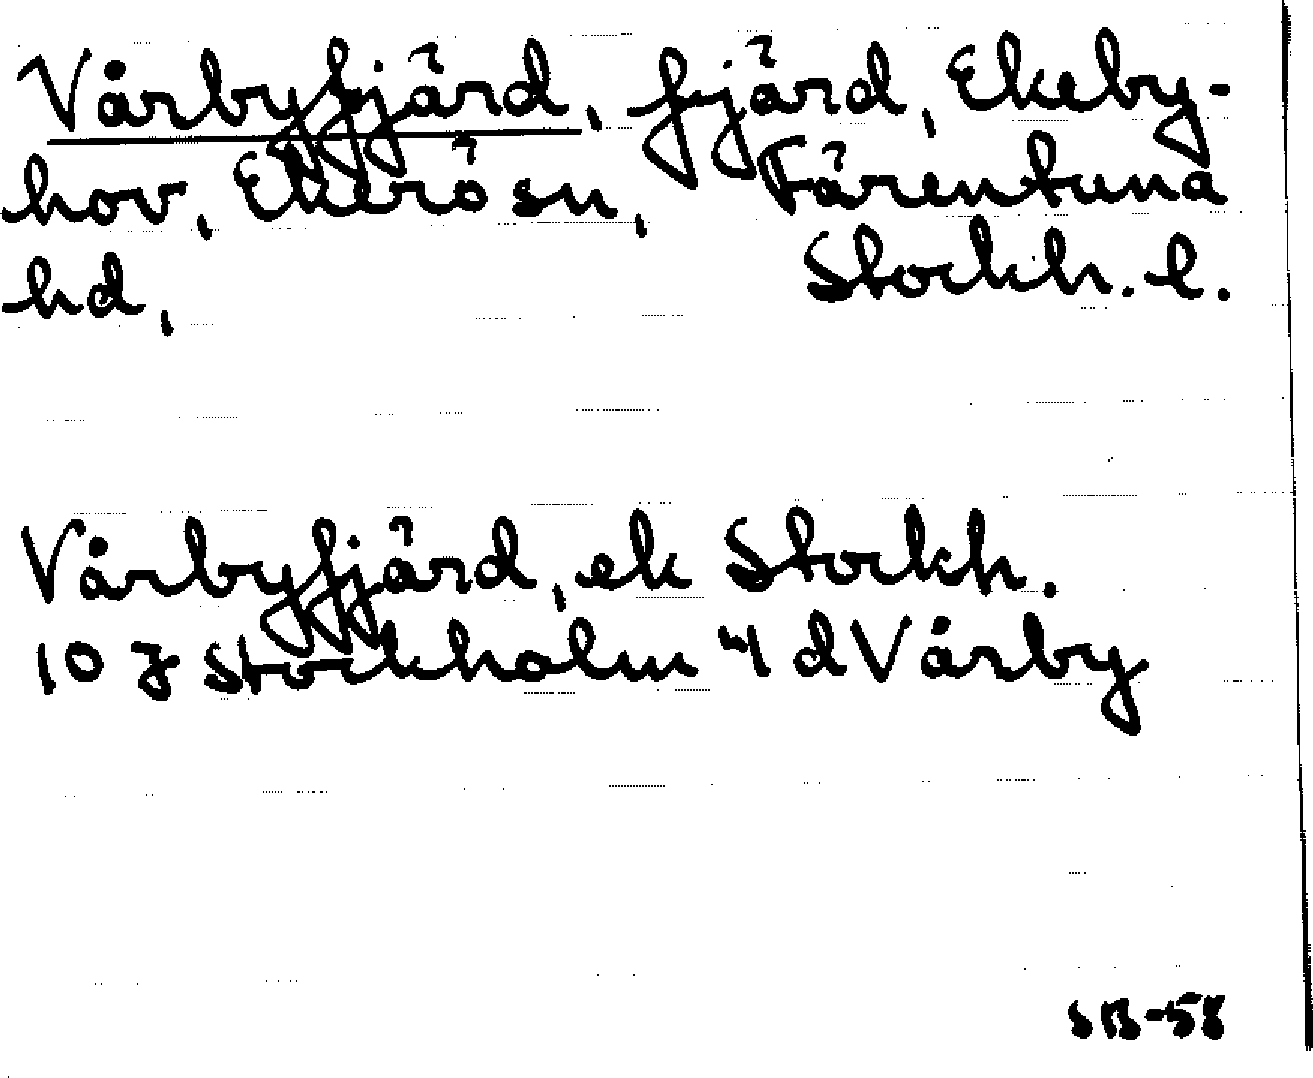 Vårbyfjärd, fjärd, Ekeby-
hov, Ekerö sn, Färentuna
hd, Stockh. l.
Vårbyfjärd, ek Stockh.
10 J Stockholm 4 d Vårby
SB-58